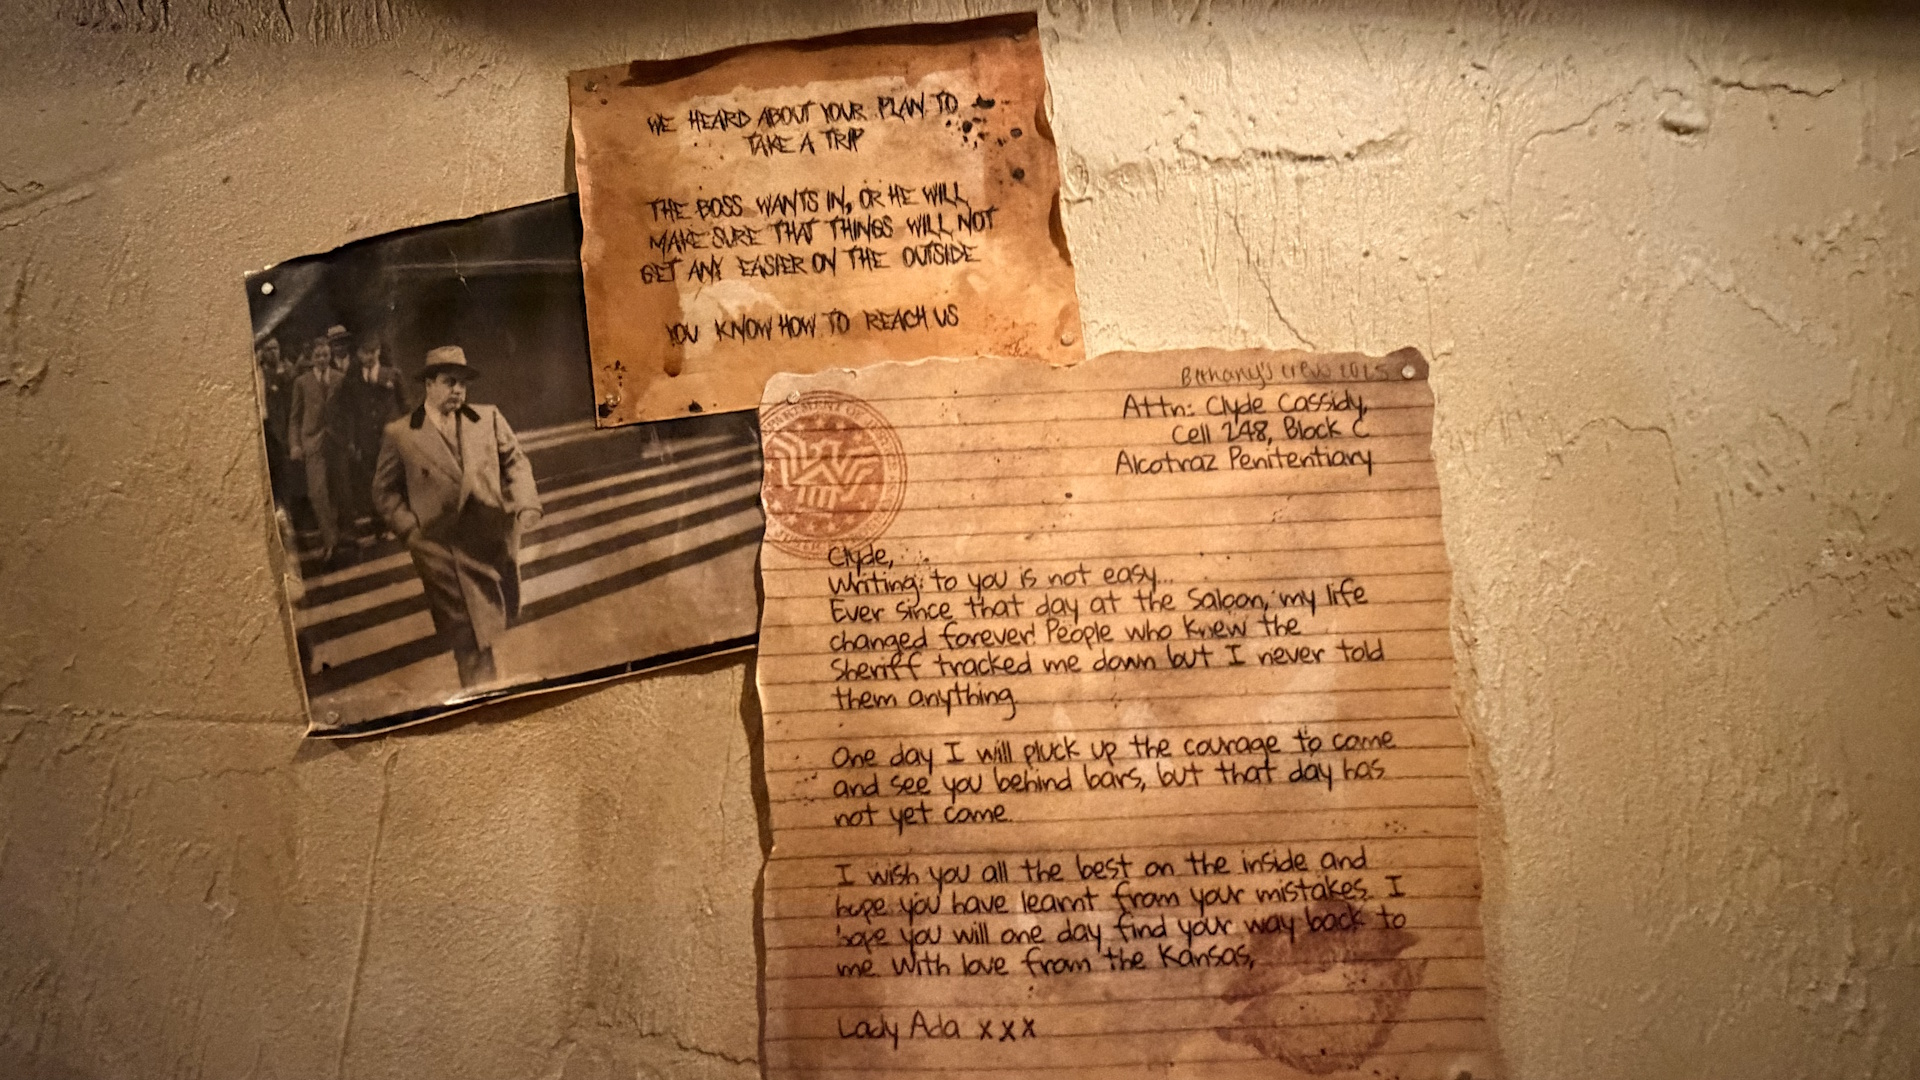 WE HEARD ABOUT YOUR PLAN TO
TAKE A TRIP
THE BOSS WANTS IN, OR HE WILL
MAKE SURE THAT THINGS WILL NOT
GET ANY EASIER ON THE OUTSIDE
YOU KNOW HOW TO REACH US
Bethany's crew
Attn: Clyde Cassidy,
Cell 248, Block C
Alcatraz Penitentiary
DEPARTMENT OF
Clyde,
Writing to you is not easy...
Ever since that day at the Saloon, my life
changed forever! People who knew the
Sheriff tracked me down but I never told
them anything.
One day I will pluck up the courage to come
and see you behind bars, but that day has
not yet come.
I wish you all the best on the inside and
hope you have learnt from your mistakes. I
hope you will one day find your way back to
me. With love from the Kansas,
Lady Ada xxx